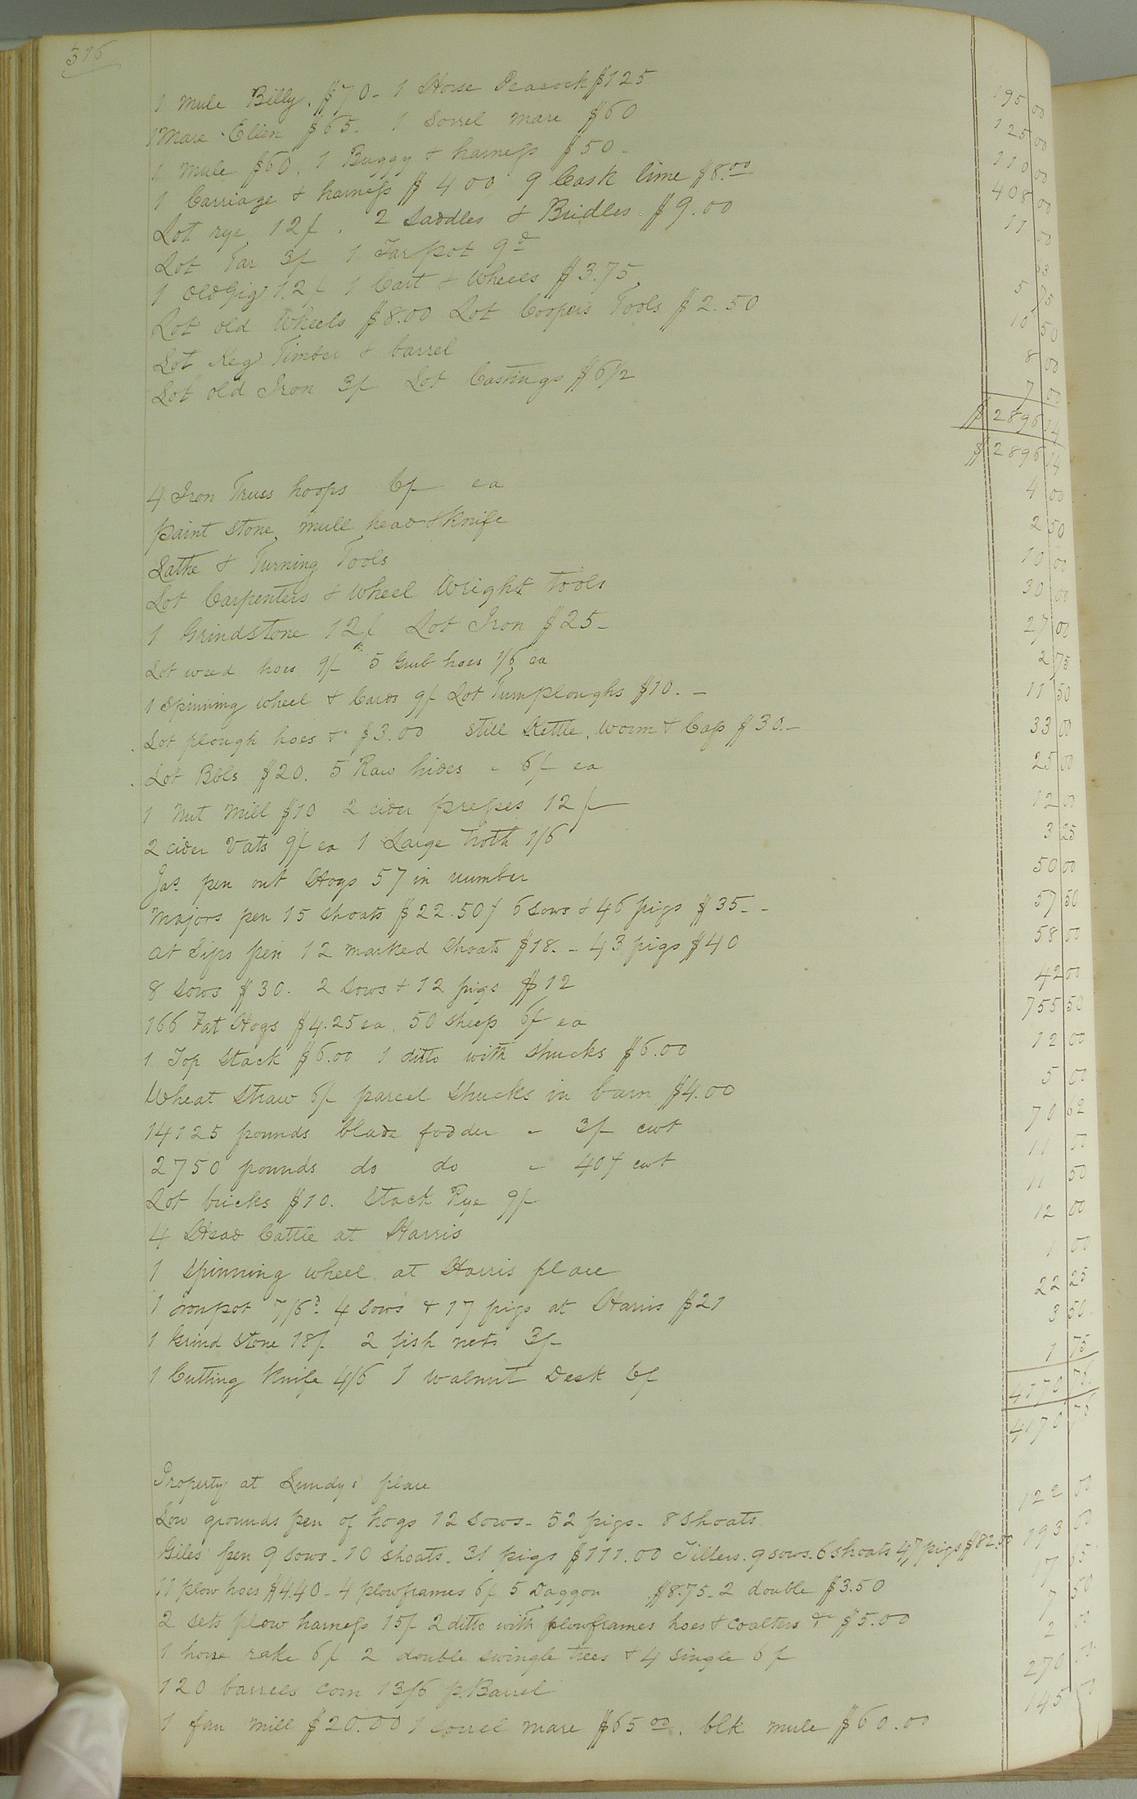 316
1 Mule Billy. $70 - 1 Horse Peacock $125 195 00
1 Mare Ellen $65. 1 Sorrel mare $60 125 00
1 Mule $60. 1 Buggy & harness $50 - 110 00
1 Carriage & harness $400 9 Cask lime $8.00 408 00
Lot rye 12/. 2 Saddles & Bridles $9.00 11 00
Lot Tar 3/ 1 Tar pot 9d
1 Old Gig 12/ 1 Cart & Wheels $3.75 5 75
Lot old Wheels $8.00 Lot Coopers Tools $2.50 10 50
Lot Keg Timber & barrel 8 00
Lot old Iron 3/ Lot Castings $6 1/2 7 00
$ 2896 14
$ 2896 14
4 Iron Truss hoops 6/ ea 4 00
Paint stone, mull head & Knife 2 50
Lathe & Turning Tools 10 00
Lot Carpenters & Wheel Wright tools 30 00
1 Grindstone 12/ Lot Iron $25 - 27 00
Lot weed hoes 9/ 5 Grub hoes 1/6 ea 2 75
1 Spinning wheel & Cards 9/ Lot Turnploughs $10. - 11 50
Lot plough hoes & $3.00 Still Kettle, worm & Cap $30. - 33 00
Lot Bbls $20. 5 Raw hides - 6/ ea 25 00
1 Nut Mill $10 2 cider presses 12/ 12 00
2 cider Vats 9/ ea 1 Large Troth 1/6 3 25
Jas pen out Hogs 57 in number 50 00
Majors pen 15 Shoats $22.50/ 6 Sows & 46 pigs $35 - - 57 50
at Sips pen 12 marked Shoats $18. - 43 pigs $40 58 00
8 Sows $30. 2 Sows & 12 pigs $12 42 00
166 Fat Hogs $4.25 ea. 50 Sheep 6/ ea 755 50
1 Top Stack $6.00 1 ditto with Shucks $6.00 12 00
Wheat Straw 6/ parcel Shucks in barn $4.00 5 00
14125 pounds blade fodder - 3/ cwt 70 62
2750 pounds do do - 40¢ cwt 11 00
Lot bricks $10. Stack Rye 9/ 11 50
4 Head Cattle at Harris 12 00
1 Spinning wheel at Harris place 1 00
1 Ironpot 7/6d 4 Sows & 17 pigs at Harris $21 22 25
1 Grind Stone 18/ 2 fish nets 3/ 3 50
1 Cutting Knife 4/6 1 walnut Desk 6/ 1 75
4170 76
4170 76
Property at Lundy's place
Low grounds pen of hogs 12 Sows - 52 pigs - 8 Shoats 122 00
Giles pen 9 Sows - 10 Shoats - 31 pigs $111.00 Tillers. 9 sows. 6 shoats 47 pigs $82.00 193 00
11 plow hoes $4.40 - 4 plowframes 6/ 5 Daggon $8.75 - 2 double $3.50 17 65
2 sets plow harness 15/ 2 ditto with plowframes hoes & coalters & $5.00 7 50
1 horse rake 6/ 2 double swingle trees & 4 single 6/ 2 00
120 barrels corn 13/6 p. Barrel 270 00
1 fan mill $20.00 1 sorrel mare $65 00. blk mule $60.00 145 00